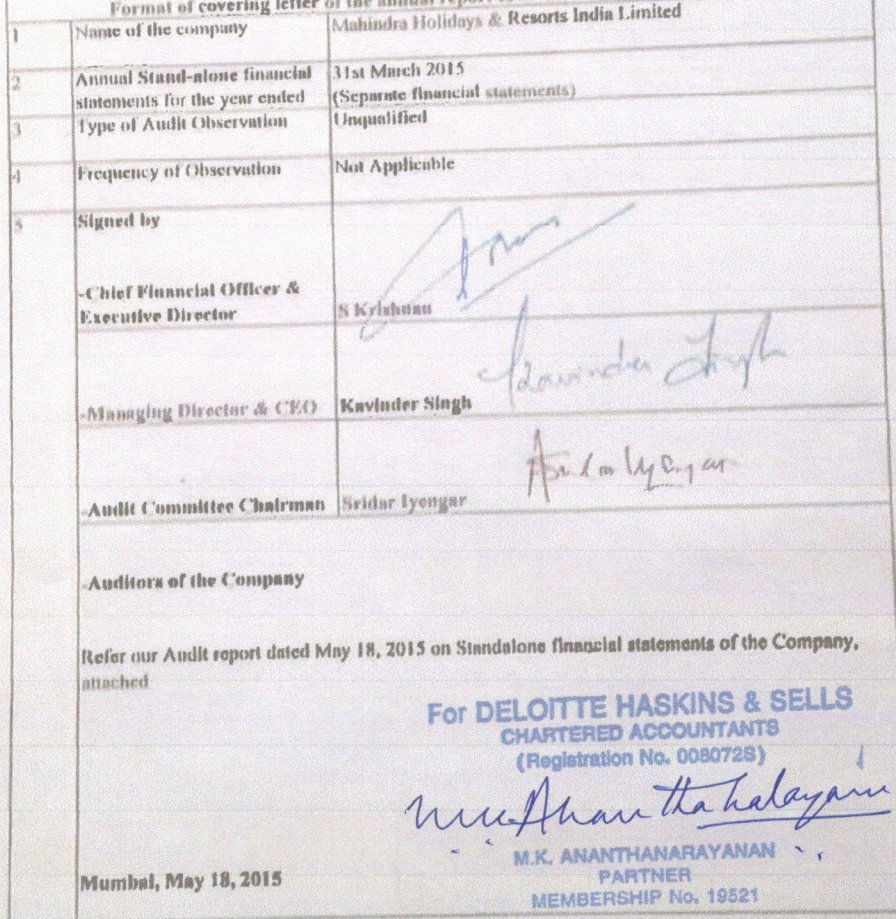 Format of covering letter of the annual report
1 Name of the company Mahindra Holidays & Resorts India Limited
2 Annual Stand-alone financial statements for the year ended 31st March 2015
(Separate financial statements)
3 Type of Audit Observation Unqualified
4 Frequency of Observation Not Applicable
5 Signed by
-Chief Financial Officer &
Executive Director S Krishnan
Kavinder Singh
-Managing Director & CEO Kavinder Singh
-Audit Committee Chairman Sridar Iyengar
-Auditors of the Company
Refer our Audit report dated May 18, 2015 on Standalone financial statements of the Company,
attached
For DELOITTE HASKINS & SELLS
CHARTERED ACCOUNTANTS
(Registration No. 008072S)
M.K. ANANTHANARAYANAN
PARTNER
MEMBERSHIP No. 19521
Mumbai, May 18, 2015